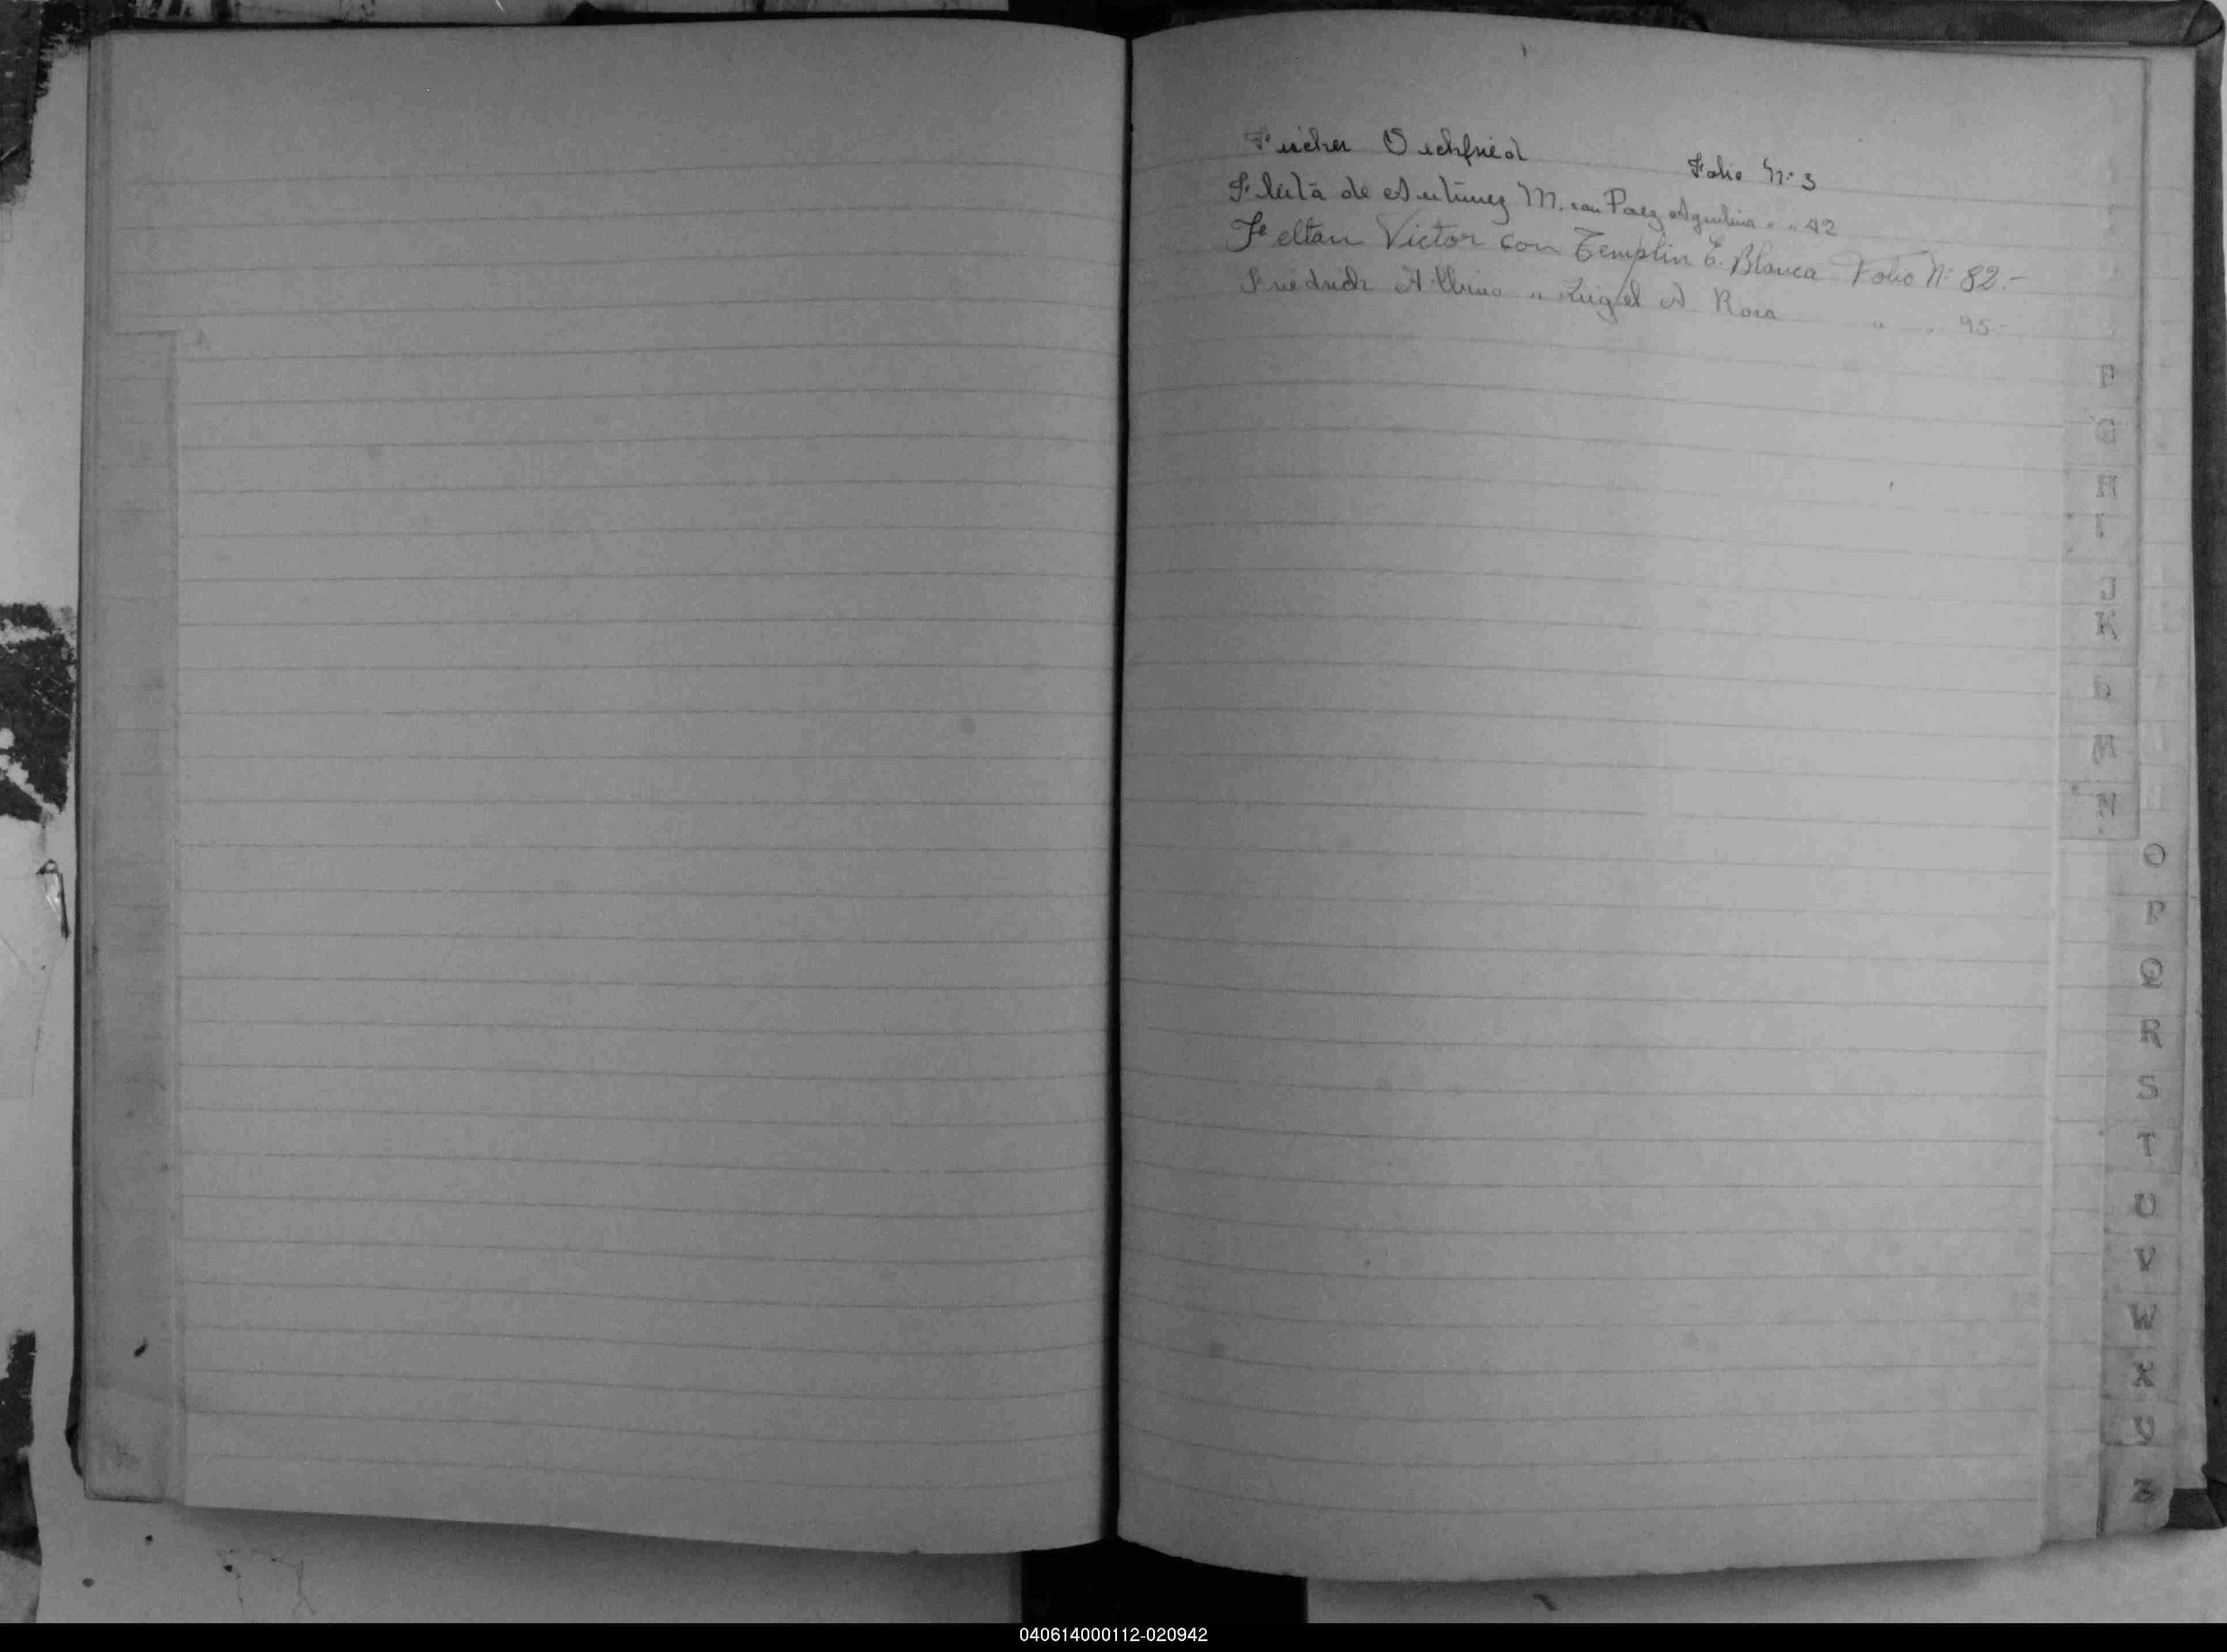 Fuicher Sichfried Folio Nº 3
Fleitã de Antũnez M. con Paez Agustina " " 42
Feltan Victor con Templin E. Blanca Folio Nº 82.-
Friedrich Albino " Luigel A. Rosa " " 95-
F
G
H
I
J
K
L
M
N
O
P
Q
R
S
T
U
V
W
X
Y
Z
040614000112-020942